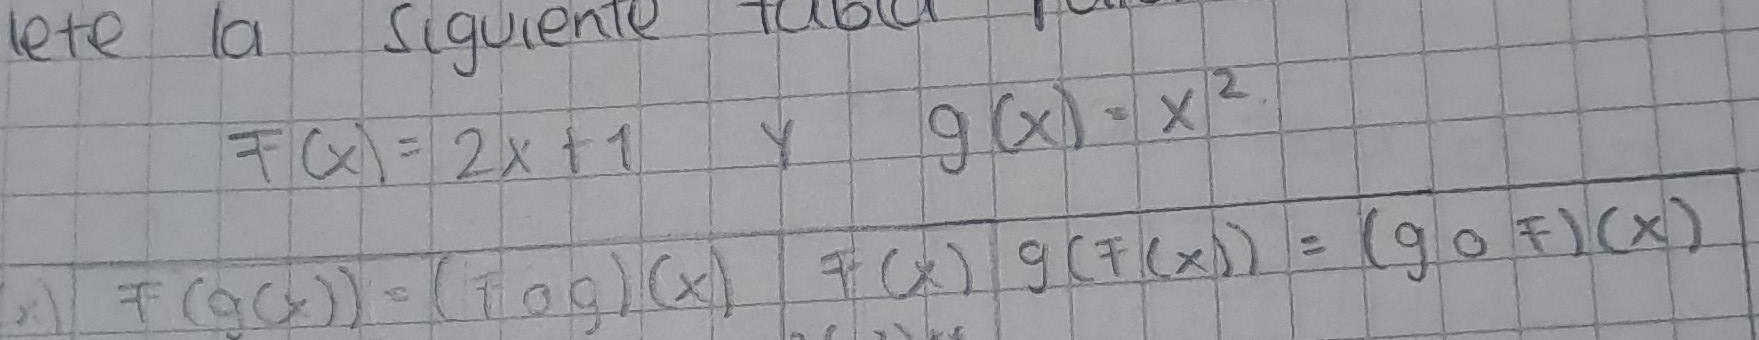 lete la siguiente tabla
F(x) = 2x + 1 y g(x) = x².
x) F(g(x)) = (F o g)(x) F(x) g(F(x)) = (g o F)(x)